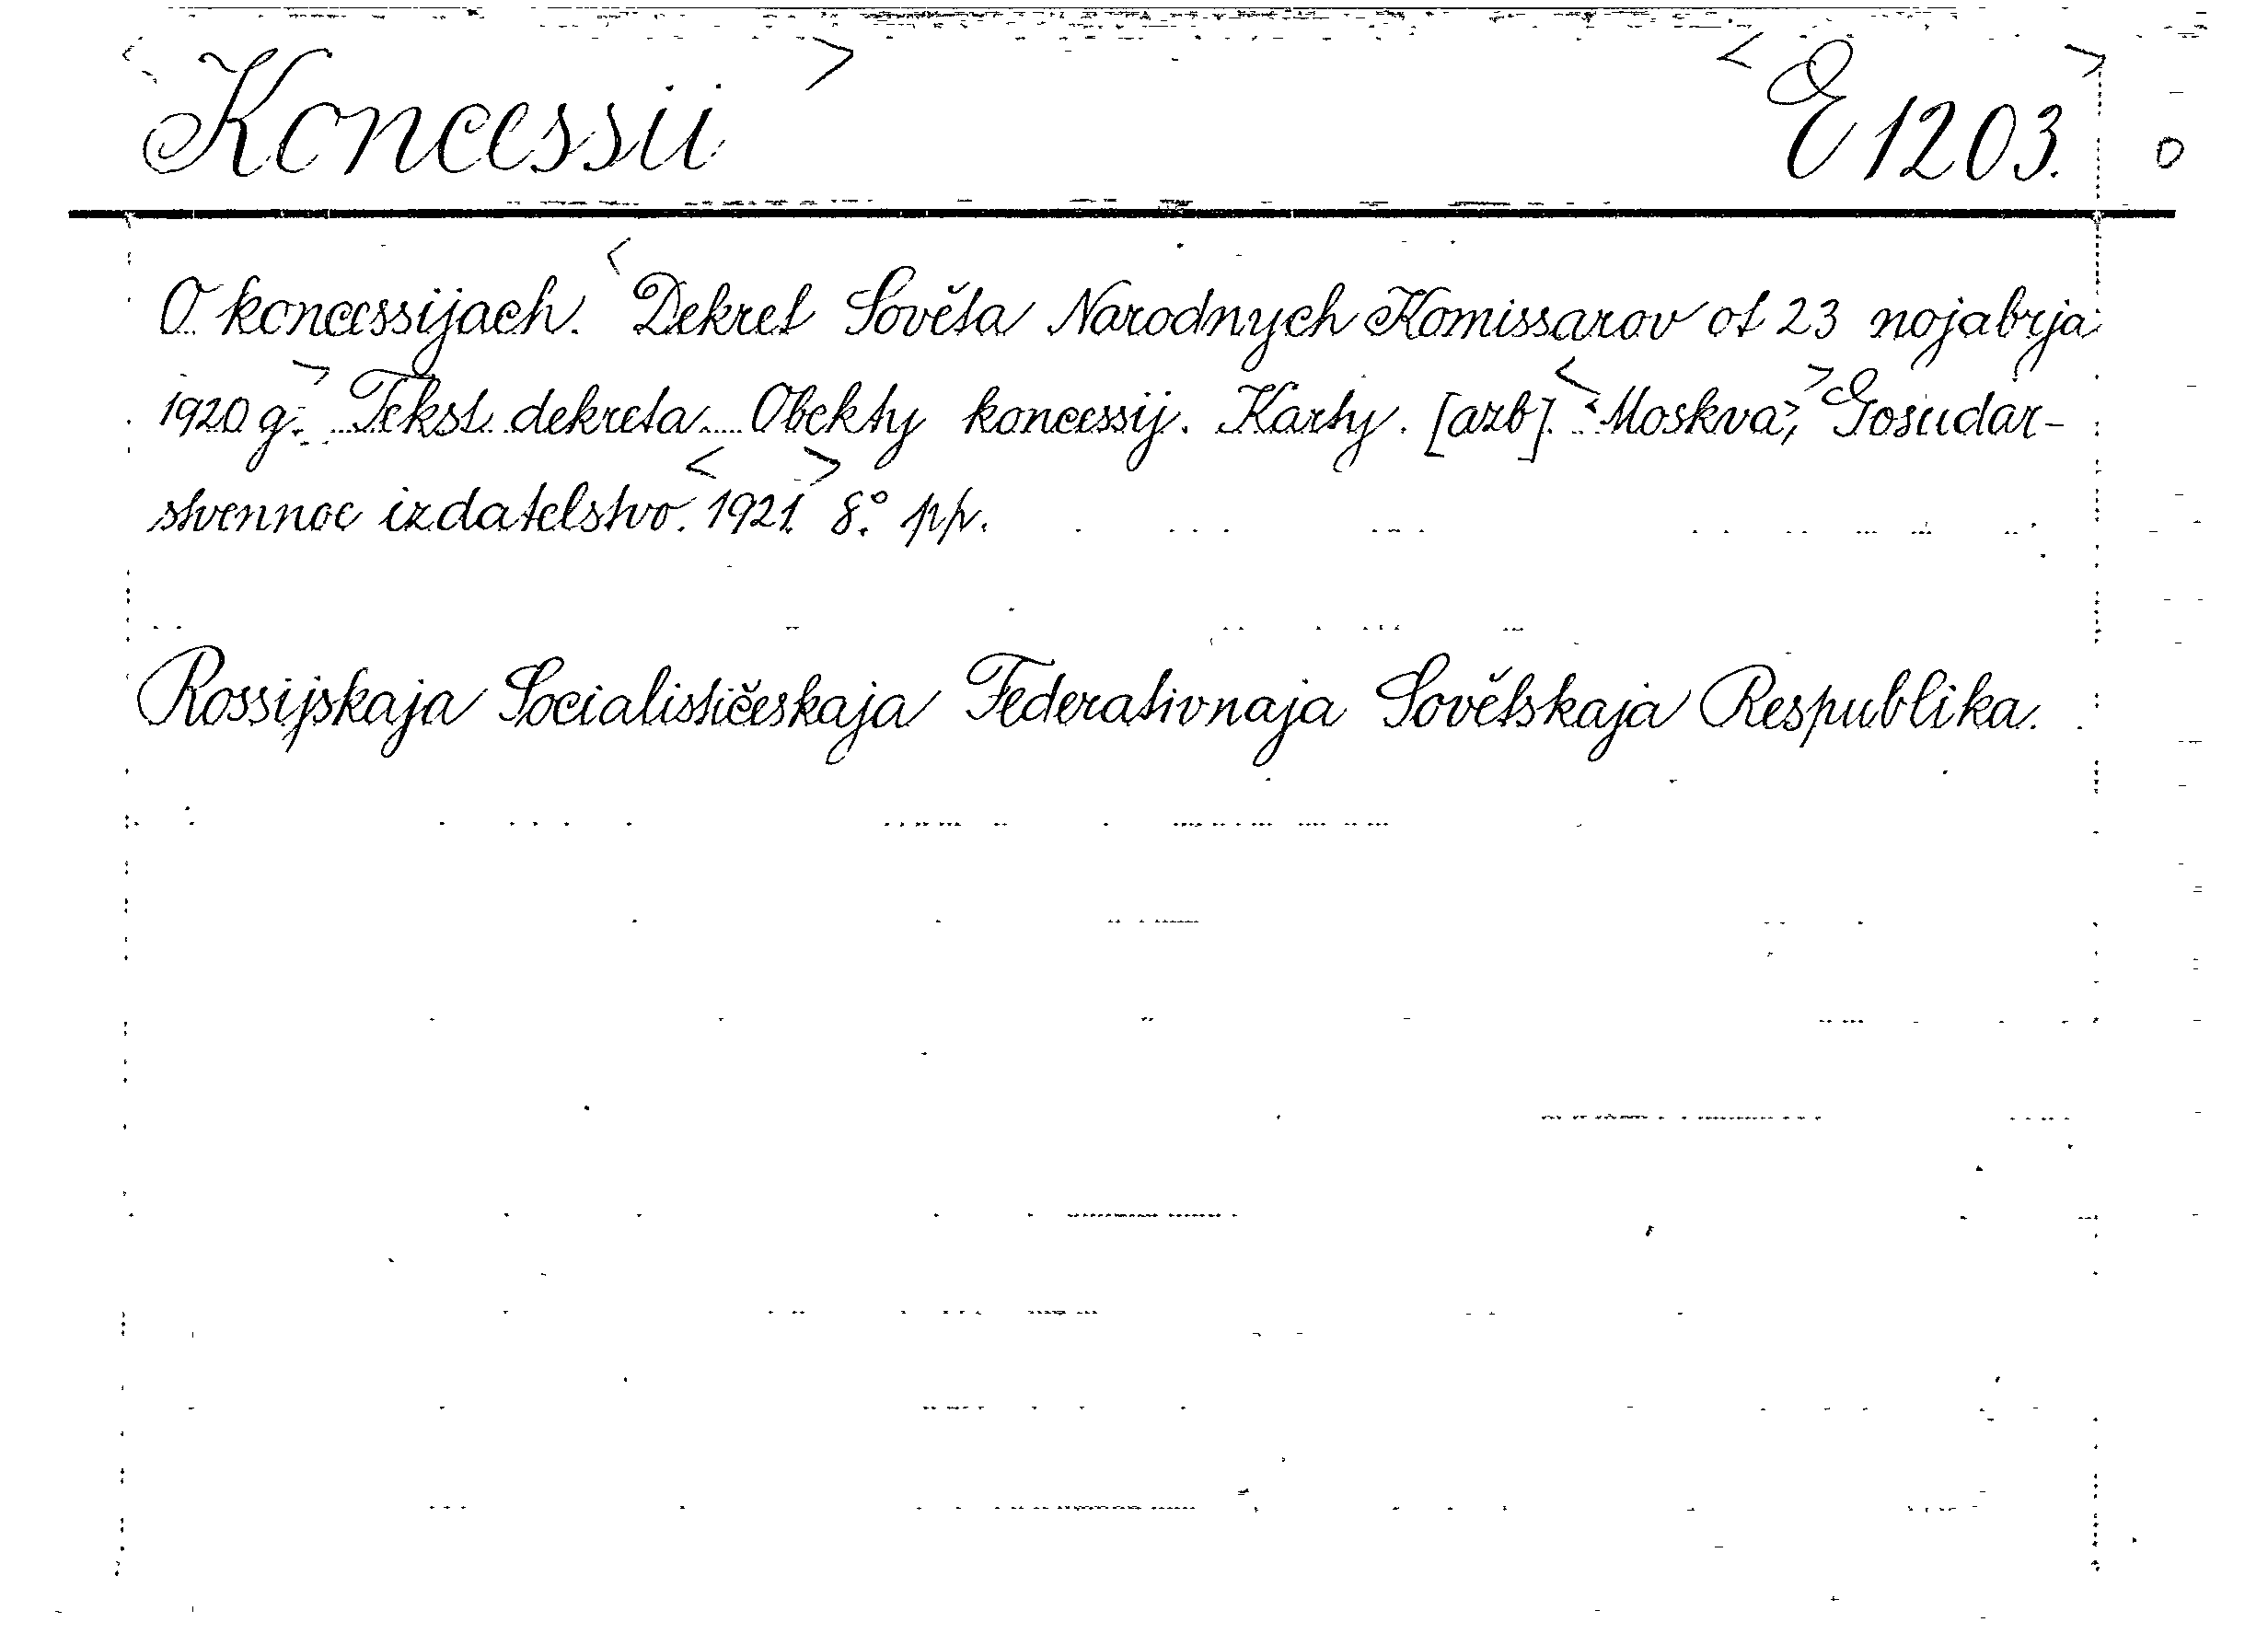 <Koncessii> <E 1203.> 0
O koncessijach. <Dekret Sověta Narodnych Komissarov ot 23 nojabrja
1920 g.> Tekst dekreta. Obekty koncessij. Karty. [azb]. <Moskva>, Gosudar-
stvennoe izdatelstvo. <1921.> 8.° pp.
Rossijskaja Socialističeskaja Federativnaja Sovětskaja Respublika.